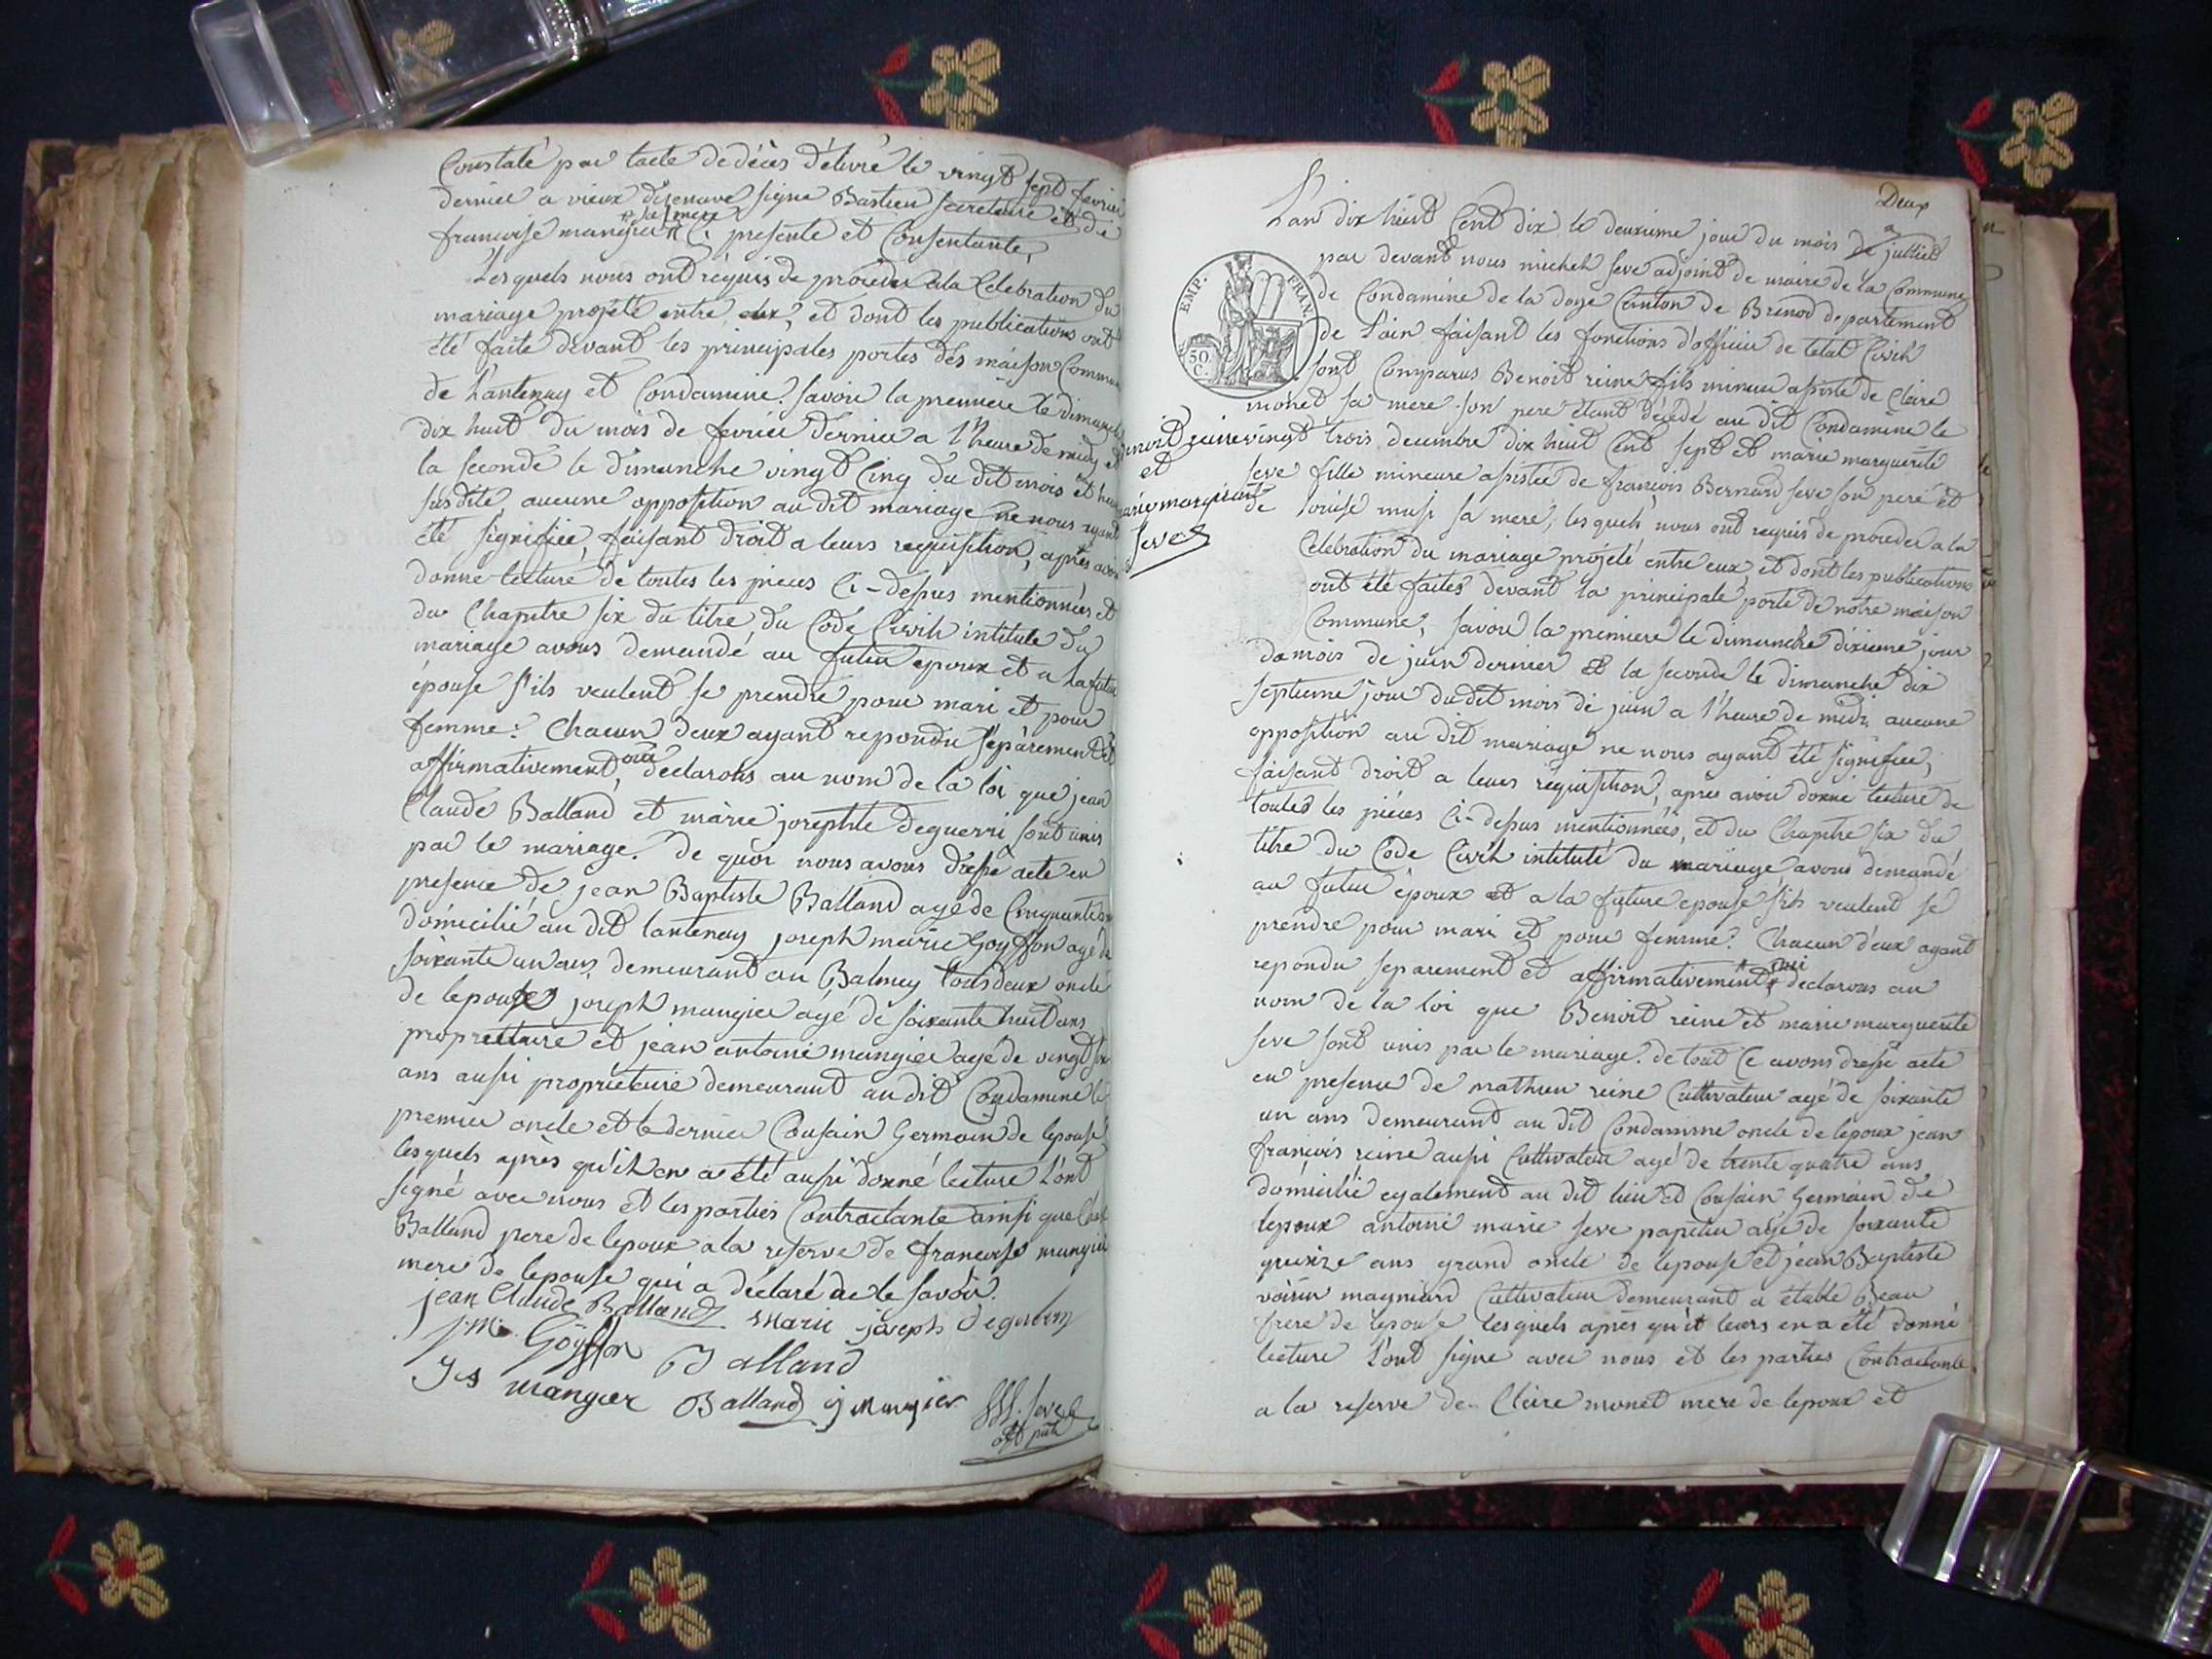 Constaté par lacte de décès délivré le vingt sept fevrier
dernier a vieux disenave signe Bastien secretaire et de
francoise mangier sa mere Ci presente et Consentante,
Lesquels nous ont réquis de procéder a la Celebration du
mariage projété entre eux, et dont les publications ont
été faite devant les principales portes des maison Commune
de Lantenay et Condamine. Savoir la premiere le dimanche
dix huit du mois de fevrier dernier a l'heure de midy et
la seconde le dimanche vingt Cinq du dit mois et heure
susdite, aucune opposition au dit mariage ne nous ayant
été signifiée, faisant droit a leurs requisition, après avoir
donné lecture de toutes les pieces Ci-dessus mentionnées et
du Chapitre six du titre du Code Civil intitulé du
mariage avons demandé au futur époux et a la future
épouse s'ils veulent se prendre pour mari et pour
femme? Chacun deux ayant repondu séparement et
affirmativement oui declarons au nom de la loi que jean
Claude Balland et marie josephte deguerri sont unis
par le mariage. De quoi nous avons dressé acte en
presence de jean Baptiste Balland agé de Cinquante
domicilié au dit lantenay joseph marie Goyffon agé de
soixante un ans demeurant au Balmey tous deux oncle
de lepoux joseph mangier agé de soixante huit ans
proprettaire et jean antoine mangier agé de vingt six
ans aussi proprietaire demeurant au dit Condamine le
premier oncle et le dernier Cousain Germain de lepouse
lesquels après qu'il en a été aussi donné lecture l'ont
signé avec nous et les parties Contractante ainsi que
Balland pere de lepoux a la reserve de francoise mangier
mere de lepouse qui a déclaré ne le savoir.
jean Claude Balland marie joseph deguerry
j.m. Goyffon Balland
Jh mangier Balland j mangier
Seve
adjt
Deux
L'an dix huit Cent dix le deuxieme jour du mois de juillet
par devant nous michel seve adjoint de maire de la Commune
de Condamine de la doye Canton de Brenod departement
de l'ain faisant les fonctions d'officier de letat Civil
EMP. FRAN.
50
C.
sont Comparus Benoit reine fils mineur assisté de Claire
monet sa mere son pere étant décédé au dit Condamine le
vingt trois decembre dix huit Cent sept et marie marguerite
seve fille mineure assistée de francois Bernard seve son pere et
de louise mussi sa mere, les quels nous ont requis de proceder a la
benoit reine
et
marie marguerite
seve
Celebration du mariage projeté entre eux, et dont les publications
ont été faites devant la principale porte de notre maison
Commune, savoir la premiere le dimanche dixieme jour
du mois de juin dernier et la seconde le dimanche dix
septieme jour du dit mois de juin a l'heure de midi, aucune
opposition au dit mariage ne nous ayant été signifiée,
faisant droit a leurs requisition, après avoir donné lecture de
toutes les pièces Ci-dessus mentionnées, et du Chapitre six du
titre du Code Civil intitulé du mariage avons demandé
au futur époux et a la future epouse s'ils veulent se
prendre pour mari et pour femme? Chacun d'eux ayant
repondu separement et affirmativement oui declarons au
nom de la loi que Benoit reine et marie marguerite
seve sont unis par le mariage. de tout Ce avons dressé acte
en presence de mathieu reine Cultivateur agé de soixante
un ans demeurant au dit Condamine oncle de lepoux jean
francois reine aussi Cultivateur agé de trente quatre ans,
domicilié egalement au dit lieu et Cousain Germain de
lepoux antoine marie seve papetier agé de soixante
quinze ans grand oncle de lepouse et jean Baptiste
voisin magniard Cultivateur demeurant a étable Beau
frere de lepouse lesquels après qu'il leurs en a été donné
lecture l'ont signe avec nous et les parties Contractante
a la reserve de Claire monet mere de lepoux et